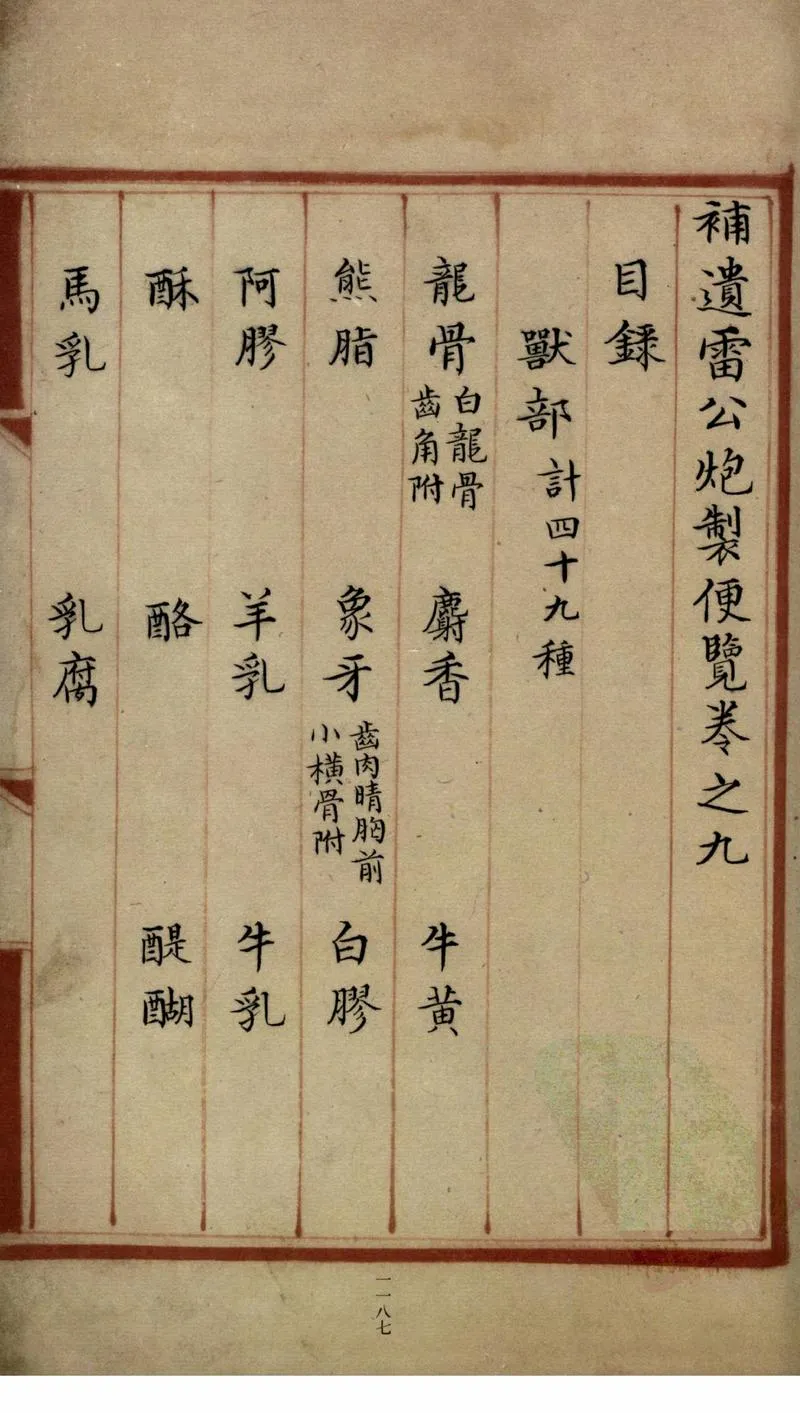 補遺雷公炮製便覽卷之九
目錄
獸部計四十九種
龍骨白龍骨齒角附 麝香 牛黃
熊脂 象牙齒肉睛胸前小橫骨附 白膠
阿膠 羊乳 牛乳
酥 酪 醍醐
馬乳 乳腐
一一八七